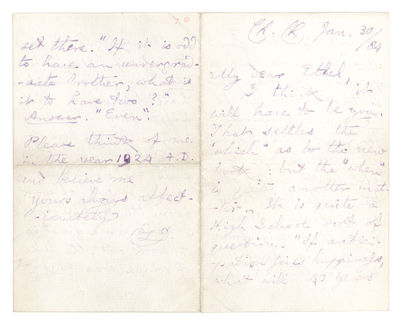 Ch. Ch. Jan. 30/84
My dear Ethel,
I think it
will have to be you.
That settles the
"which" as to the new
book: but the "when"
is another mat-
ter. It is quite a
High School sort of
question. "If antici-
pation give happiness,
what will 40 years
20
set there." If it is odd
to have an undergrad-
uate brother, what is
it to have two?"
Answer. "Even".
Please think of me
in the year 1924 A.D.
and believe me
yours always affect-
ionately